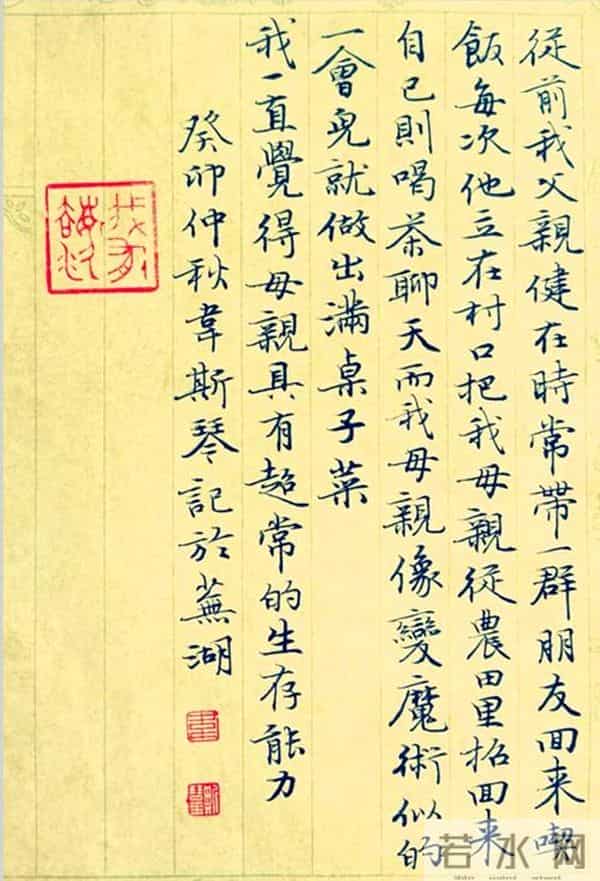 從前我父親健在時常帶一群朋友回来喫
飯每次他立在村口把我母親從農田里招回来
自己則喝茶聊天而我母親像變魔術似的
一會皃就做出滿桌子菜
我一直覺得母親具有超常的生存能力
癸卯仲秋韋斯琴記於蕪湖
若水网